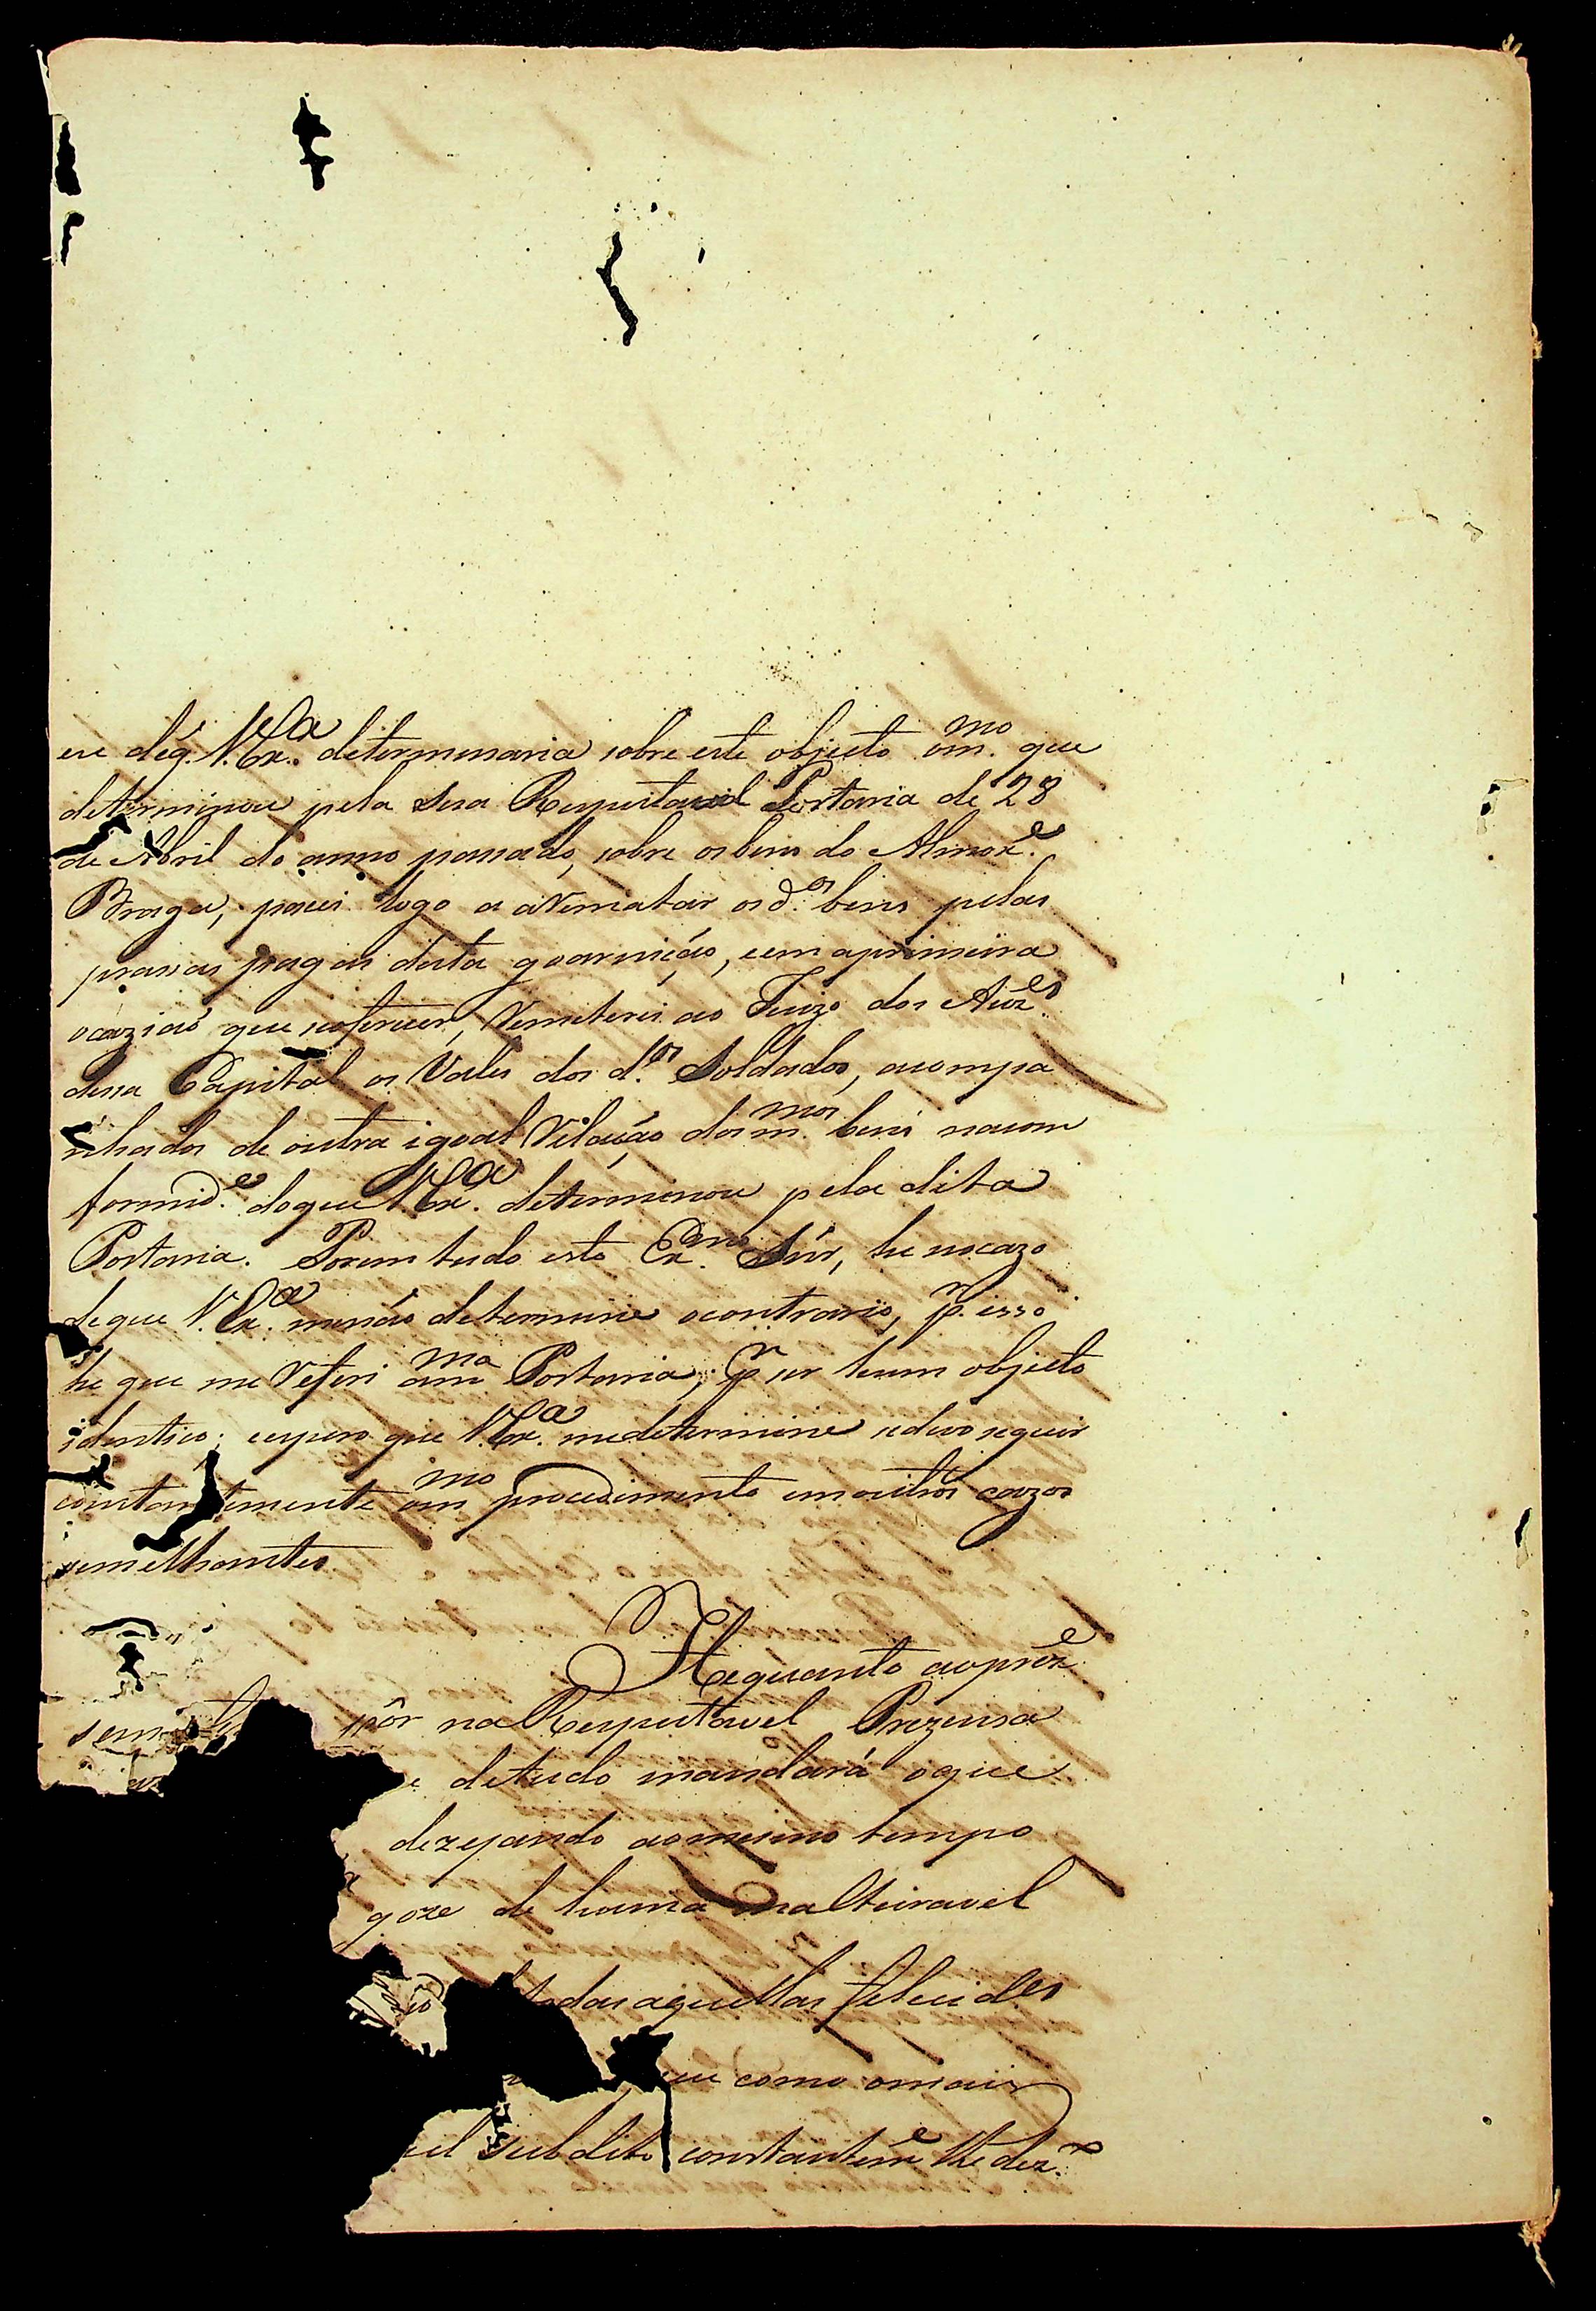 se deq. V. Ex.ª determenaria sobre este objecto om.mo que
determinou pela sua Respeitavel Portaria de 28
de Abril do anno passado, sobre os bens do Almox.e
Braga, passei logo a arrematar os d.os bens pelas
prassas pagas desta guarnição, e em aprimeira
ocazião que se oferecer, remeterei ao Juizo dos Auz.es
dessa Capital os Vales dos d.os Soldados, acompa
nhados de outra igoal relação dos m.mos bens na com
formid.e do que V. Ex.ª determinou pela dita
Portaria. Porem tudo esto Ex.mo Snr, he no cazo
de que V. Ex.ª me não determine o contrario, p.r isso
he que me referi am.ma Portaria, p.r ser hum objecto
identico; e espero que V. Ex.ª me determine se devo seguir
constantemente om.mo procedimento em outros cazos
semelhantes.
He quanto ao prez.e
se me pôr na Respeitavel Prezensa
de tudo mandará o que
dezejando ao mesmo tempo
goze de huma inalteiravel
todas aquellas felecid.es
que como o mais
el subdito constantem.e lhe dez.